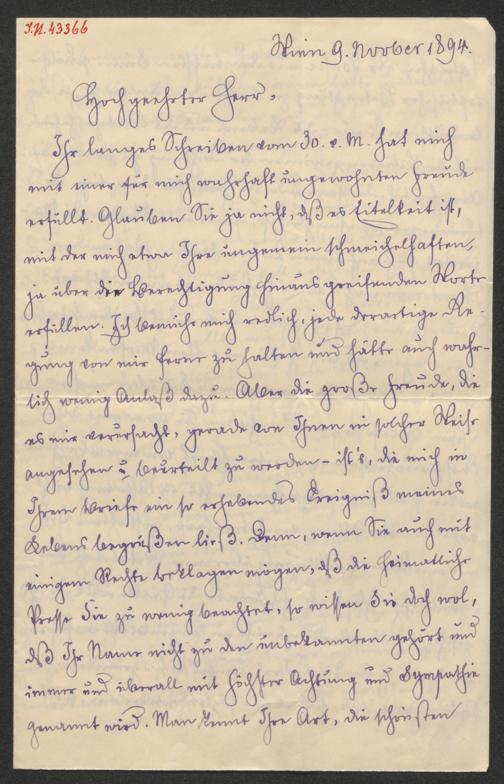 I.N. 43366
Wien 9. Novber 1894.
Hochgeehrter Herr,
Ihr langes Schreiben vom 30. v. M. hat mich
mit einer für mich wahrhaft ungewohnten Freude
erfüllt. Glauben Sie ja nicht, dß es Eitelkeit ist,
mit der mich etwa Ihre ungemein schmeichelhaften,
ja über die Berechtigung hinaus greifenden Worte
erfüllen. Ich bemühe mich redlich, jede derartige Re-
gung von mir ferne zu halten und hätte auch wahr-
lich wenig Anlaß dazu. Aber die große Freude, die
es mir verursacht, gerade von Ihnen in solcher Weise
angesehen u beurteilt zu werden – ist's, die mich in
Ihrem Briefe ein so erhebendes Ereigniß meines
Lebens begrüßen ließ. Denn, wenn Sie auch mit
einigem Rechte beklagen mögen, dß die heimatliche
Presse Sie zu wenig beachtet, so wissen Sie doch wol,
dß Ihr Name nicht zu den unbekannten gehört und
immer und überall mit höchster Achtung und Sympathie
genannt wird. Man kennt Ihre Art, die schönsten